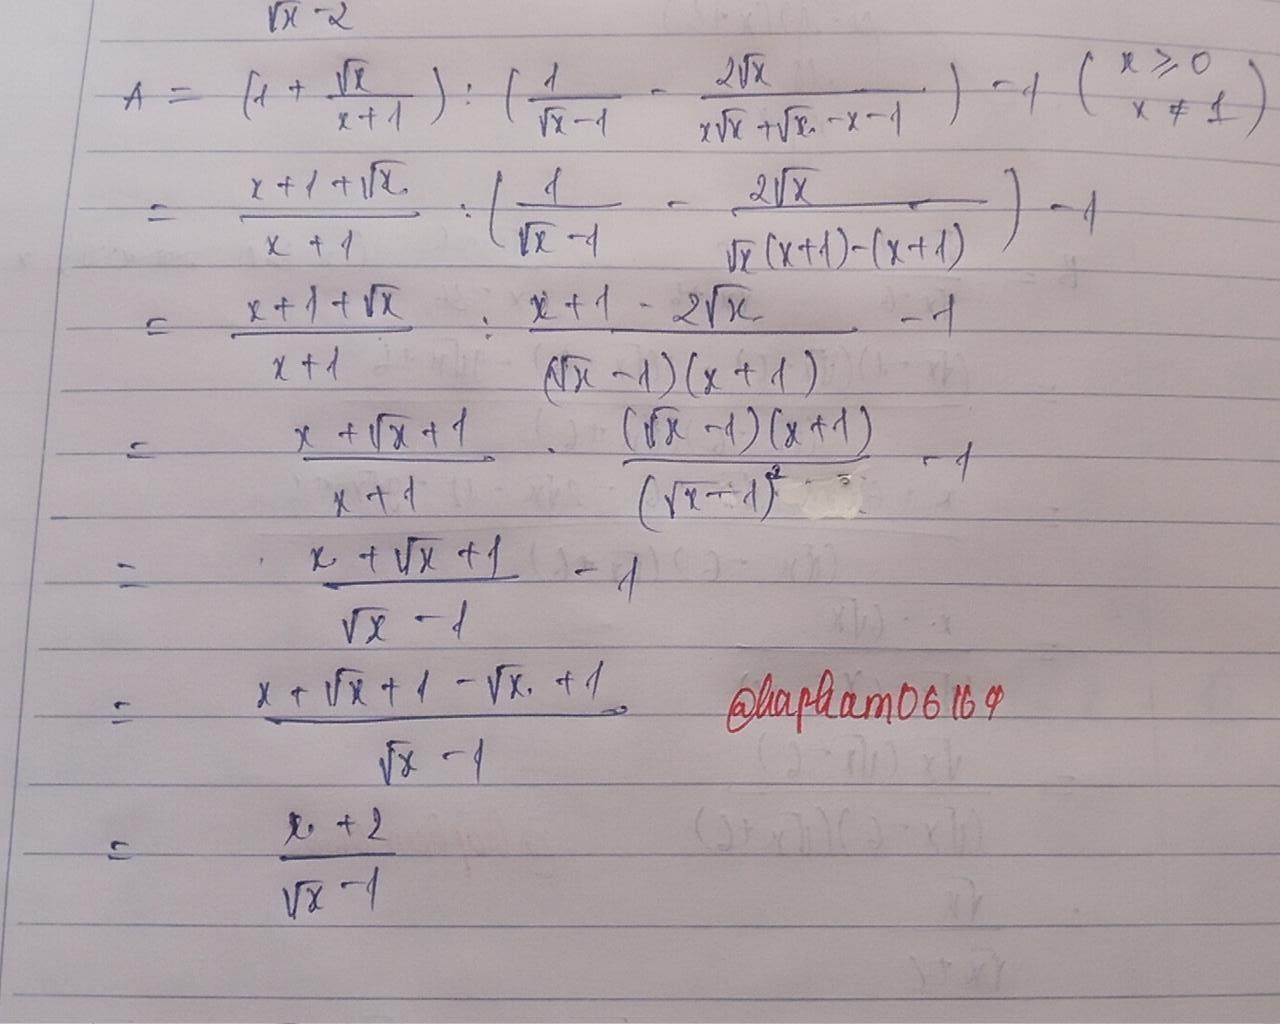 √x - 2
A = (1 + √x/(x+1)) : (1/(√x-1) - 2√x/(x√x+√x-x-1)) - 1 (x ≥ 0 x ≠ 1)
= (x+1+√x)/(x+1) : (1/(√x-1) - 2√x/(√x(x+1)-(x+1))) - 1
= (x+1+√x)/(x+1) : (x+1-2√x)/((√x-1)(x+1)) - 1
= (x+√x+1)/(x+1) . ((√x-1)(x+1))/(√x-1)² - 1
= (x+√x+1)/(√x-1) - 1
= (x+√x+1-√x+1)/(√x-1)
@hapham06169
= (x+2)/(√x-1)